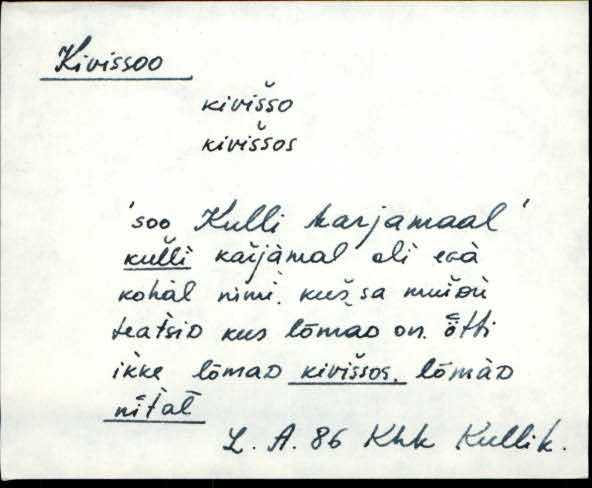 Kivissoo
kivis̆so
kivis̆sos
'soo Kulli karjamaal'
kul̆li kar̆jàmal oli egà
kohàl nimì. kus̆ sa mui̬ᴅù
teat̀siᴅ kus lõmaᴅ on. öt̆ti
ikke lõmaᴅ kivis̆sos, lõmàᴅ
L. A. 86 Khk Kullik.